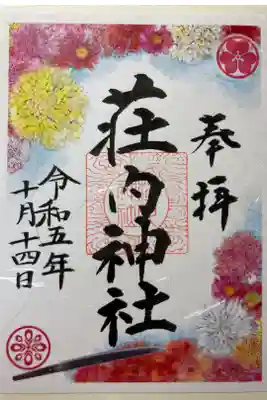 奉拝
荘内神社
令和五年
十月十四日